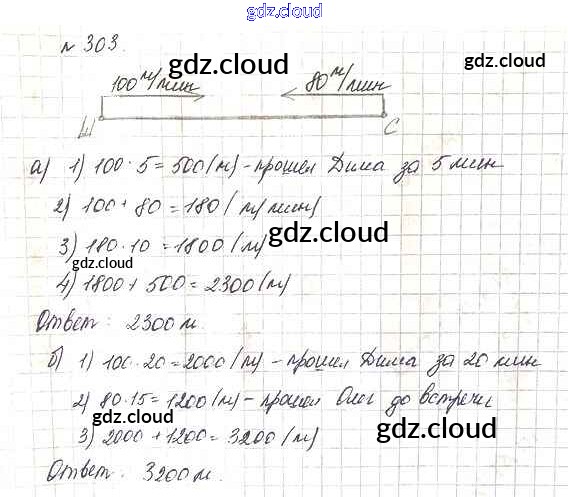 gdz.cloud
№ 303.
gdz.cloud
100 м/мин 80 м/мин
gdz.cloud
Ш С
а) 1) 100 · 5 = 500 (м) - прошел Дима за 5 мин
2) 100 + 80 = 180 (м/мин)
3) 180 · 10 = 1800 (м)
gdz.cloud
gdz.cloud
4) 1800 + 500 = 2300 (м)
Ответ: 2300 м.
gdz.cloud
б) 1) 100 · 20 = 2000 (м) - прошел Дима за 20 мин
2) 80 · 15 = 1200 (м) - прошел Олег до встречи
gdz.cloud
3) 2000 + 1200 = 3200 (м)
gdz.cloud
Ответ: 3200 м.